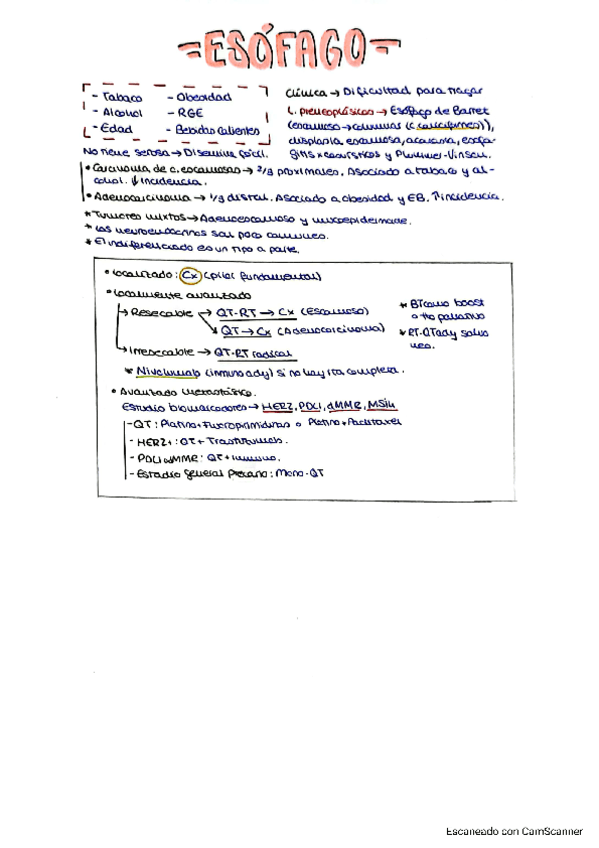 =ESÓFAGO=
- Tabaco - Obesidad
- Alcohol - RGE
- Edad - Bebidas calientes
Clínica → Dificultad para tragar
L. preneoplásicas → Esófago de Barret
(escamoso → columnar (C. caliciformes)),
displasia escamosa, acalasia, esofa-
gitis x cáusticos y Plummer-Vinson.
No tiene serosa → Disemina fácil.
• Carcinoma de c. escamosas → 2/3 proximales. Asociado a tabaco y al-
cohol. ↓ incidencia.
• Adenocarcinoma → 1/3 distal. Asociado a obesidad y EB. ↑ incidencia.
* Tumores mixtos → Adenoescamoso y mucoepidermoide.
* Los neuroendocrinos son poco comunes.
* El indiferenciado es un tipo a parte.
• Localizado: Cx (pilar fundamental)
• Localmente avanzado
→ Resecable → QT-RT → Cx (Escamoso)
QT → Cx (Adenocarcinoma)
→ Irresecable → QT-RT radical
* Nivolumab (inmunoady) si no hay rta completa.
* BT como boost
o tto paliativo
* RT-QT ady salvo
neo.
• Avanzado metastásico.
Estudio biomarcadores → HER2, PDL1, dMMR, MSIH
- QT: Platino + Fluoropirimidinas o Platino + Paclitaxel
- HER2+: QT + Trastuzumab.
- PDL1 o dMMR: QT + inmuno.
- Estadio general precario: Mono-QT
Escaneado con CamScanner